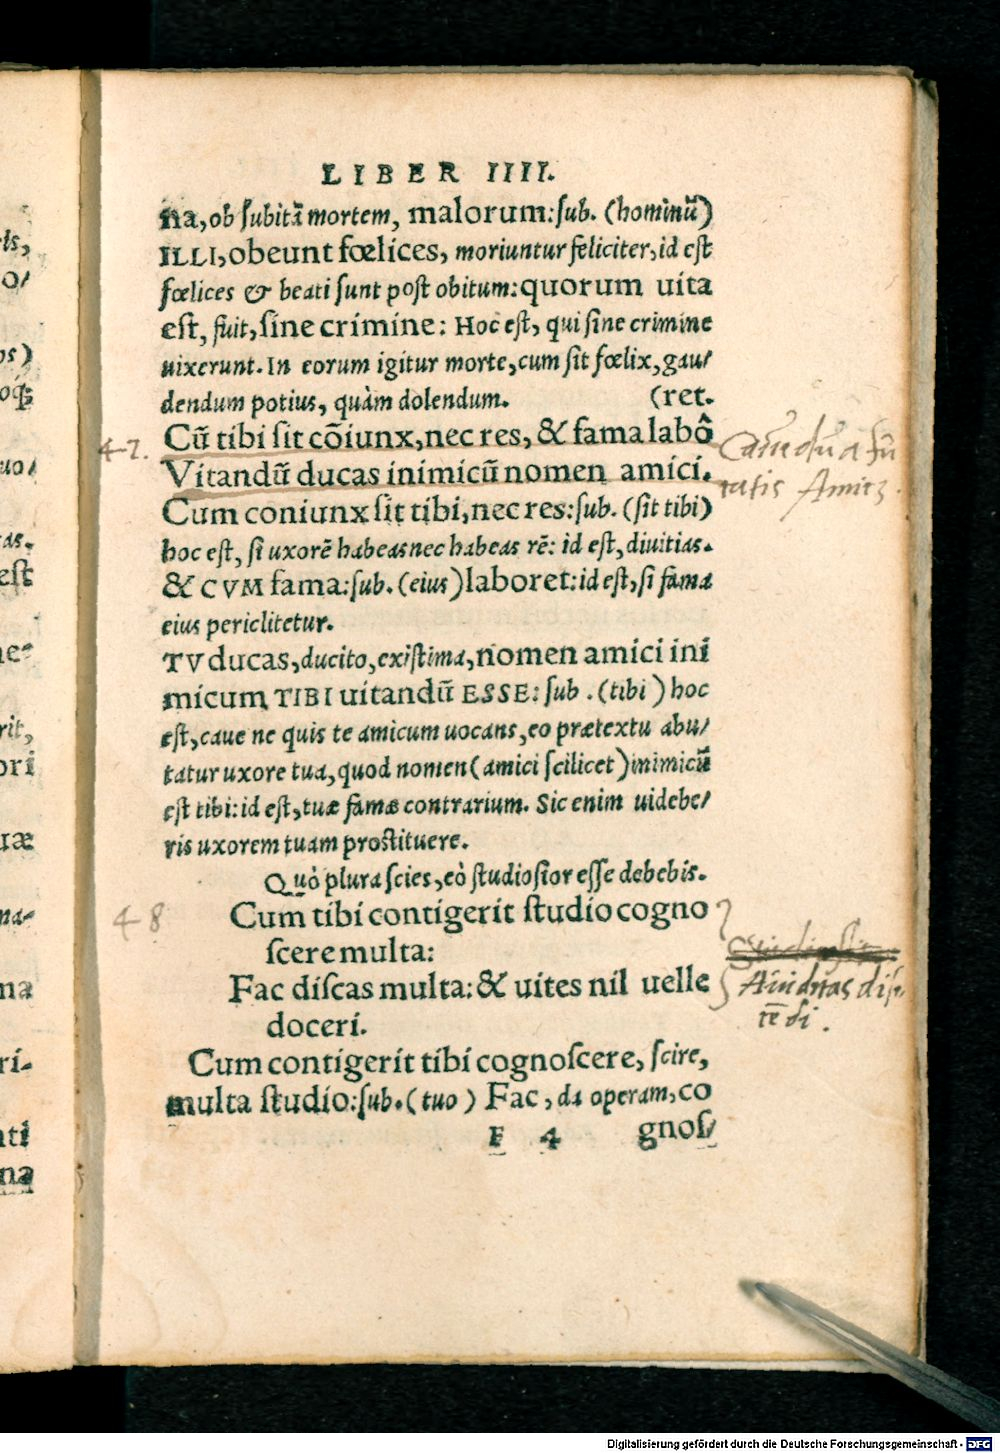 LIBER IIII.
na, ob ſubitā mortem, malorum: ſub. (hominū)
ILLI, obeunt fœlices, moriuntur feliciter, id eſt
fœlices & beati ſunt poſt obitum: quorum uita
eſt, fuit, ſine crimine: Hoc eſt, qui ſine crimine
uixerunt. In eorum igitur morte, cum ſit fœlix, gau/
dendum potius, quàm dolendum. (ret.
47. Cū tibi ſit cōiunx, nec res, & fama labo
Vitandū ducas inimicū nomen amici.
Cum coniunx ſit tibi, nec res: ſub. (ſit tibi)
hoc eſt, ſi uxorē habeas nec habeas rē: id eſt, diuitias.
& CVM fama: ſub. (eius) laboret: id eſt, ſi fama
eius periclitetur.
TV ducas, ducito, exiſtima, nomen amici ini
micum TIBI uitandū ESSE: ſub. (tibi) hoc
eſt, caue ne quis te amicum uocans, eo prætextu abu/
tatur uxore tua, quod nomen (amici ſcilicet) inimicū
eſt tibi: id eſt, tuæ famæ contrarium. Sic enim uidebe/
ris uxorem tuam proſtituere.
Quò plura ſcies, eò ſtudioſior eſſe debebis.
48 Cum tibi contigerit ſtudio cogno
ſcere multa:
Fac diſcas multa: & uites nil uelle
doceri.
Cum contigerit tibi cognoſcere, ſcire,
multa ſtudio: ſub. (tuo) Fac, da operam, co
F 4 gnoſ/
Auiditas diſ
Digitalisierung gefördert durch die Deutsche Forschungsgemeinschaft - DFG